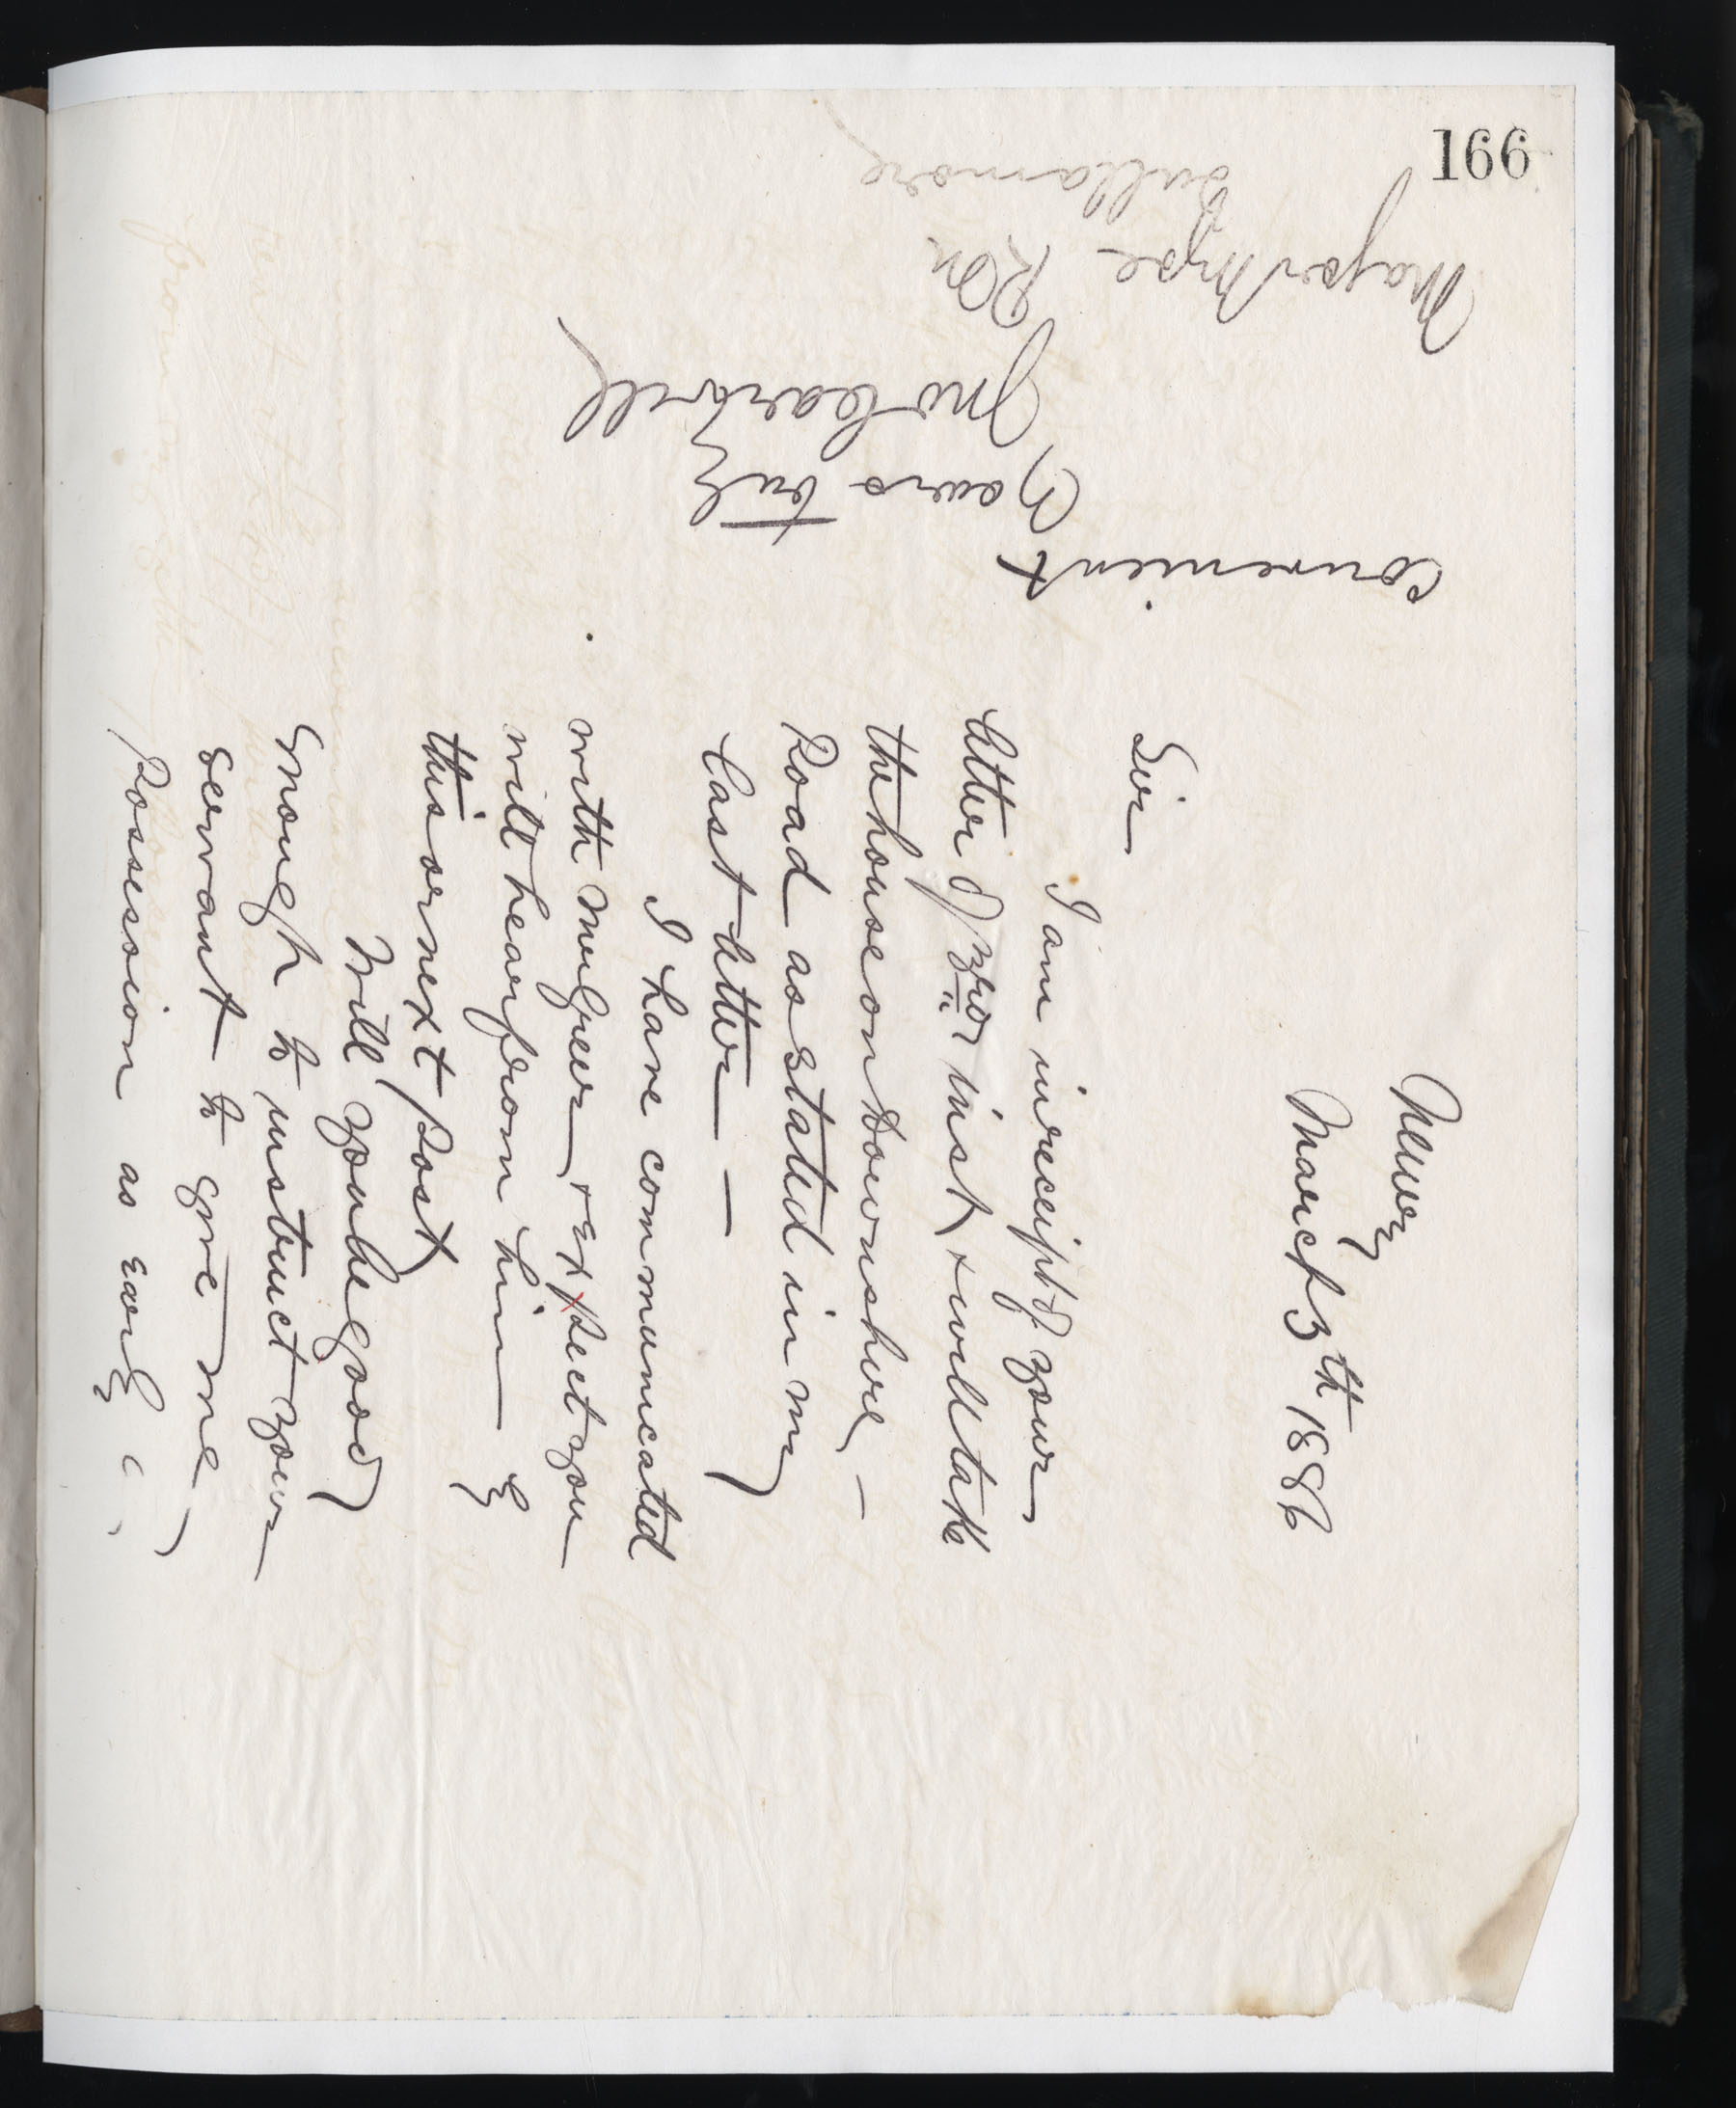 166
Newry
March 5th 1886
Sir
I am in receipt of your
letter of 3rd inst & will take
the house on Downshire
Road as stated in my
last letter —
I have communicated
with me Greer & expect you
will hear from him by
this or next post
Will you be good
enough to instruct your
servant to give me
possession as early
convenient
Yours truly
Jno Cardwell
Major Wyse RM
Tullamore